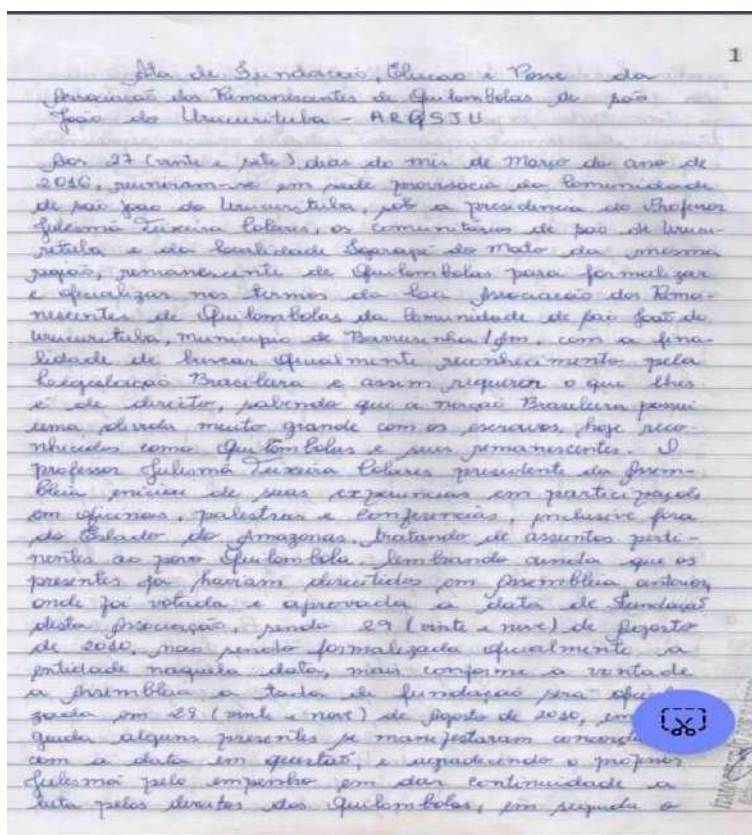 1
Ata de Fundaçaõ, Eleicao e Posse da
Associaçaõ dos Remanescentes de Quilombolas de são
João do Urucurituba - ARQSJU
Aos 27 (vinte e sete) dias do mês de Março do ano de
2016, reuniram-se em sede provisocia da Comunidade
de são joão do Urucurituba, sob a presidencia do Professor
Julesmã Teixeira Colares, os comunitários de são de Urucu-
rituba e da localidade Igarapé do Mato da mesma
região, remanescente de Quilombolas para formalizar
e oficializar nos termos da Associacaõ dos Rema-
nescentes de Quilombolas da Comunidade de são João do
Urucurituba, municipio de Barreirinha/Am, com a fina-
lidade de buscar oficialmente reconhecimento pela
Brasileira e assim requerer o que lhes
é de direito, sabendo que a naçaõ Brasileira possui
uma divida muito grande com os escravos, hoje reco-
nhecidos como Quilombolas e seus remanescentes. O
professor Julesmã Teixeira Colares presidente da Assem-
bleia iniciou de suas experiencias em participaçoẽs
em oficinas, palestras e conferencias, inclusive fora
do Estado do Amazonas, tratando de assuntos perti-
nentes ao povo Quilombola. lembrando ainda que os
presentes ja haviam discutidos em Assembleia anterior,
onde foi votada e aprovada a data de Fundaçaõ
desta Associação, sendo 29 (vinte e nove) de Agosto
de 2010, nao sendo formalizada oficialmente a
entidade naquela data, mais conforme a vontade
a Assembleia a tada de fundaçao será
zada em 29 (vinte e nove) de Agosto de 2010,
guida alguns presentes se manifestaram
com a data em questaõ, e agradecendo o professor
Julesmã pelo empenho em dar continuidade a
luta pelos direitos dos Quilombolas, em seguida o